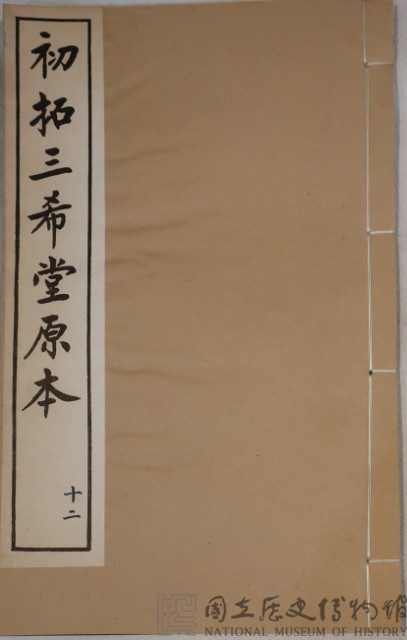 初拓三希堂原本
十二
國立歷史博物館
NATIONAL MUSEUM OF HISTORY